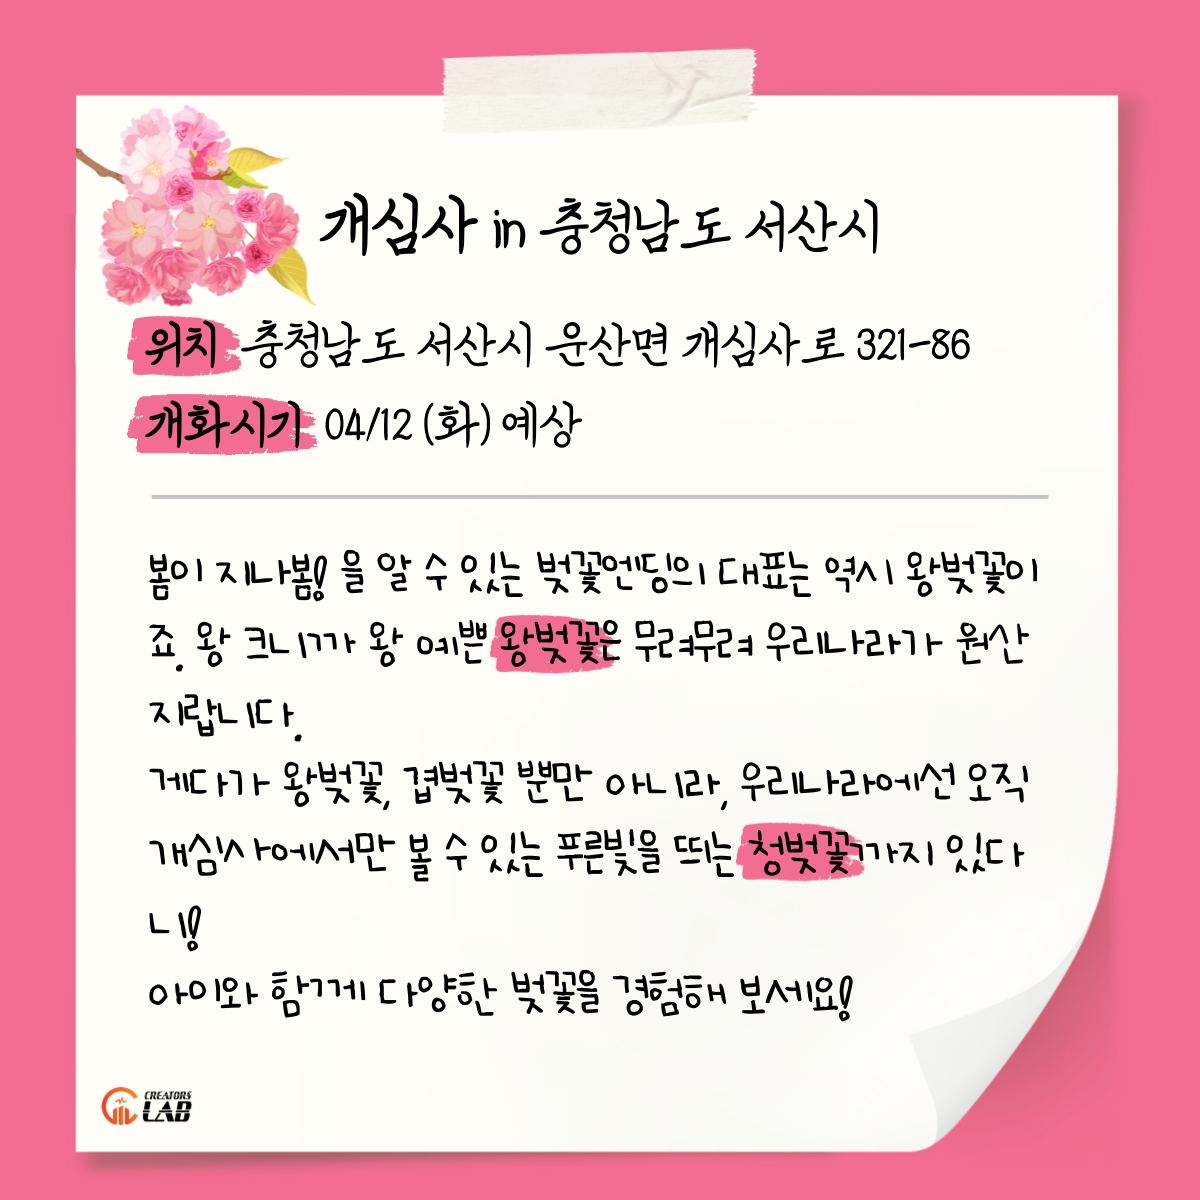 개심사 in 충청남도 서산시
위치 충청남도 서산시 운산면 개심사로 321-86
개화시기 04/12 (화) 예상
봄이 지나봄! 을 알 수 있는 벚꽃엔딩의 대표는 역시 왕벚꽃이
죠. 왕 크니까 왕 예쁜 왕벚꽃은 무려무려 우리나라가 원산
지랍니다.
게다가 왕벚꽃, 겹벚꽃 뿐만 아니라, 우리나라에선 오직
개심사에서만 볼 수 있는 푸른빛을 띄는 청벚꽃까지 있다
니!
아이와 함께 다양한 벚꽃을 경험해 보세요!
CREATORS
LAB